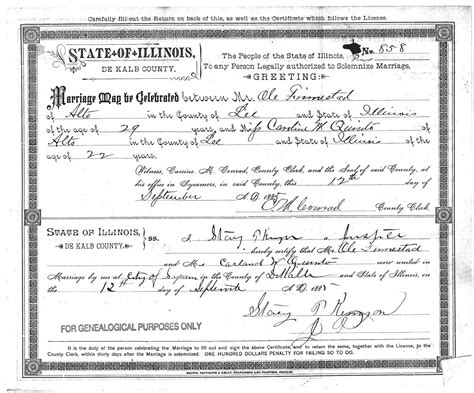 Carefully fill-out the Return on back of this, as well as the Certificate which follows the License.
STATE OF ILLINOIS,
DE KALB COUNTY.
No. 858
The People of the State of Illinois,
To any Person Legally authorized to Solemnize Marriage,
GREETING:
Marriage May be Celebrated between Mr. Ole Finnestad
of Alto in the County of Lee and State of Illinois
of the age of 29 years, and Miss Caroline W
of Alto in the County of Lee and State of Illinois
of the age of 22 years.
Witness, Cassius M. Conrad, County Clerk, and the Seal of said County, at
his office in Sycamore, in said County, this 12th day of
September A.D. 1885
C. M. Conrad County Clerk.
STATE OF ILLINOIS,
DE KALB COUNTY.
ss. I Justice
hereby certify that Mr. Ole Finnestad
and M were united in
Marriage by me at City of in the County of DeKalb and State of Illinois, on
the 12th day of September A.D. 1885
FOR GENEALOGICAL PURPOSES ONLY
It is the duty of the person celebrating the Marriage to fill out and sign the above Certificate, and to return the same, together with the License, to the
County Clerk, within thirty days after the Marriage is solemnized. ONE HUNDRED DOLLARS PENALTY FOR FAILING SO TO DO.